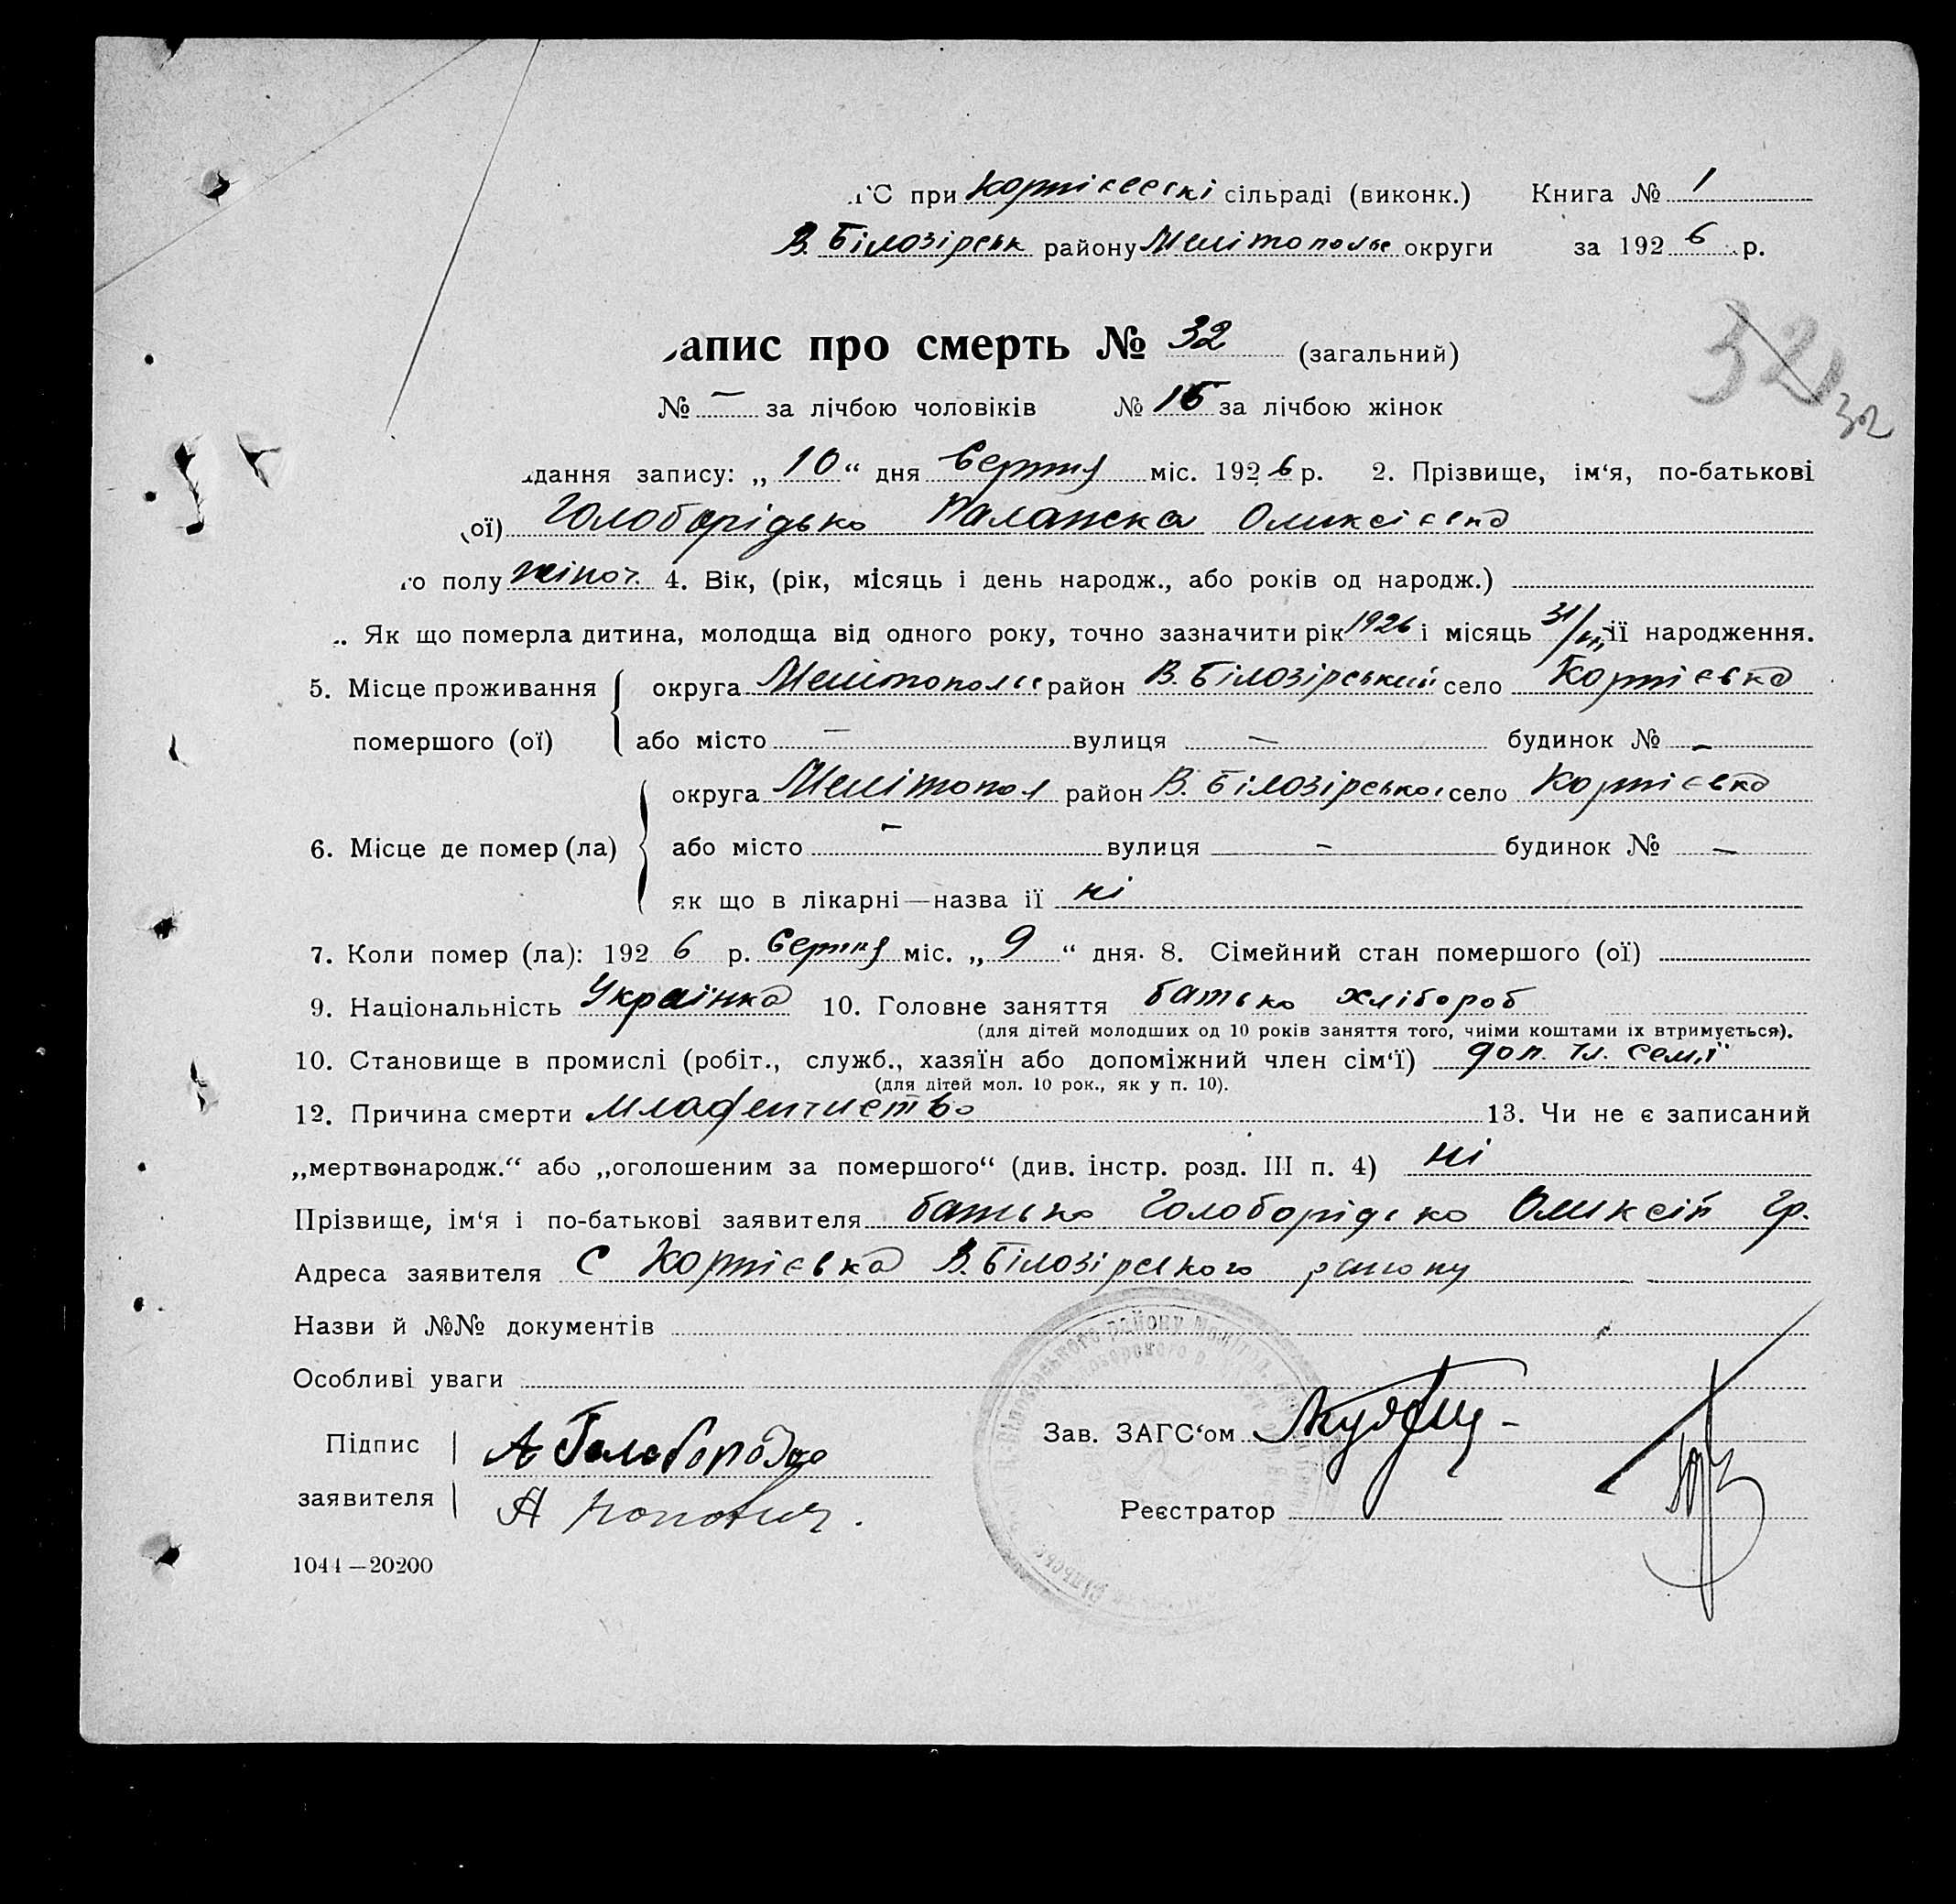 ГС при Кортієвскі сільраді (виконк.) Книга № 1
В. Білозірськ району Мелітопольс округи за 1926 р.
апис про смерть № 32 (загальний)
32
№ — за лічбою чоловіків № 16 за лічбою жінок
32
дання запису: „10“ дня Серпня міс. 1926 р. 2. Прізвище, ім‘я, по-батькові
(ої) Голоборідько Палажка Оликсієвна
го полу жіноч. 4. Вік, (рік, місяць і день народж., або років од народж.)
Як що померла дитина, молодща від одного року, точно зазначити рік 1926 і місяць 31/III її народження.
5. Місце проживання округа Мелітопольс район В. Білозірський село Кортієвка
помершого (ої) або місто — вулиця — будинок № —
округа Мелітопол район В. Білозірсько село Кортієвка
6. Місце де помер (ла) або місто — вулиця — будинок № —
як що в лікарні—назва її ні
7. Коли помер (ла): 1926 р. Серпня міс. „9“ дня. 8. Сімейний стан помершого (ої)
9. Національність Українка 10. Головне заняття батько хлібороб
(для дітей молодших од 10 років заняття того, чиїми коштами їх втримується).
10. Становище в промислі (робіт., служб., хазяїн або допоміжний член сім‘ї) доп. чл. семʼї
(для дітей мол. 10 рок., як у п. 10).
12. Причина смерти младенчиство 13. Чи не є записаний
„мертвонародж.“ або „оголошеним за помершого“ (див. інстр. розд. III п. 4) ні
Прізвище, ім‘я і по-батькові заявителя батько Голоборідько Оликсій Гр.
Адреса заявителя с Кортієвка В. Білозірського району
Назви й №№ документів
Особливі уваги
Підпис А Голобородко
Зав. ЗАГС‘ом
заявителя
Реєстратор
1044—20200